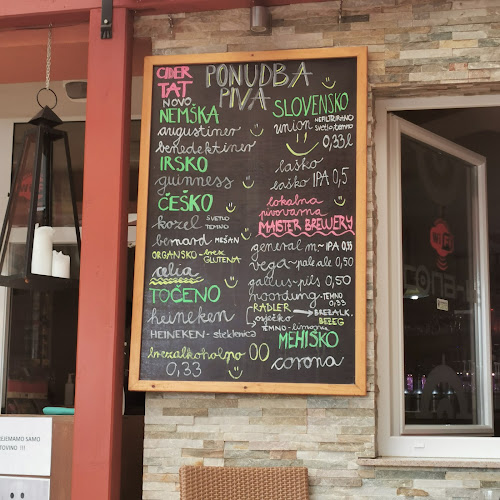 CIDER
TAT
NOVO
PONUDBA
PIVA
NEMŠKA
augustiner
benedektiner
IRSKO
guinness
ČEŠKO
kozel SVETLO
TEMNO
bernard MEŠAN
ORGANSKO - brez
GLUTENA
celia
TOČENO
heineken
HEINEKEN - steklenica
brezalkoholno 00
0,33
SLOVENSKO
union NEFILTRIRANO
svetlo, temno
0,33l
laško
laško IPA 0,5
lokalna
pivovarna
MAISTER BREWERY
general m- IPA 0,33
vega - pale ale 0,50
gallus - pils 0,50
noordung - TEMNO
0,33
RADLER → BREZALK.
osježko BEZEG
TEMNO - limona
MEHIŠKO
corona
WiFi
EJEMAMO SAMO
TOVINO !!!